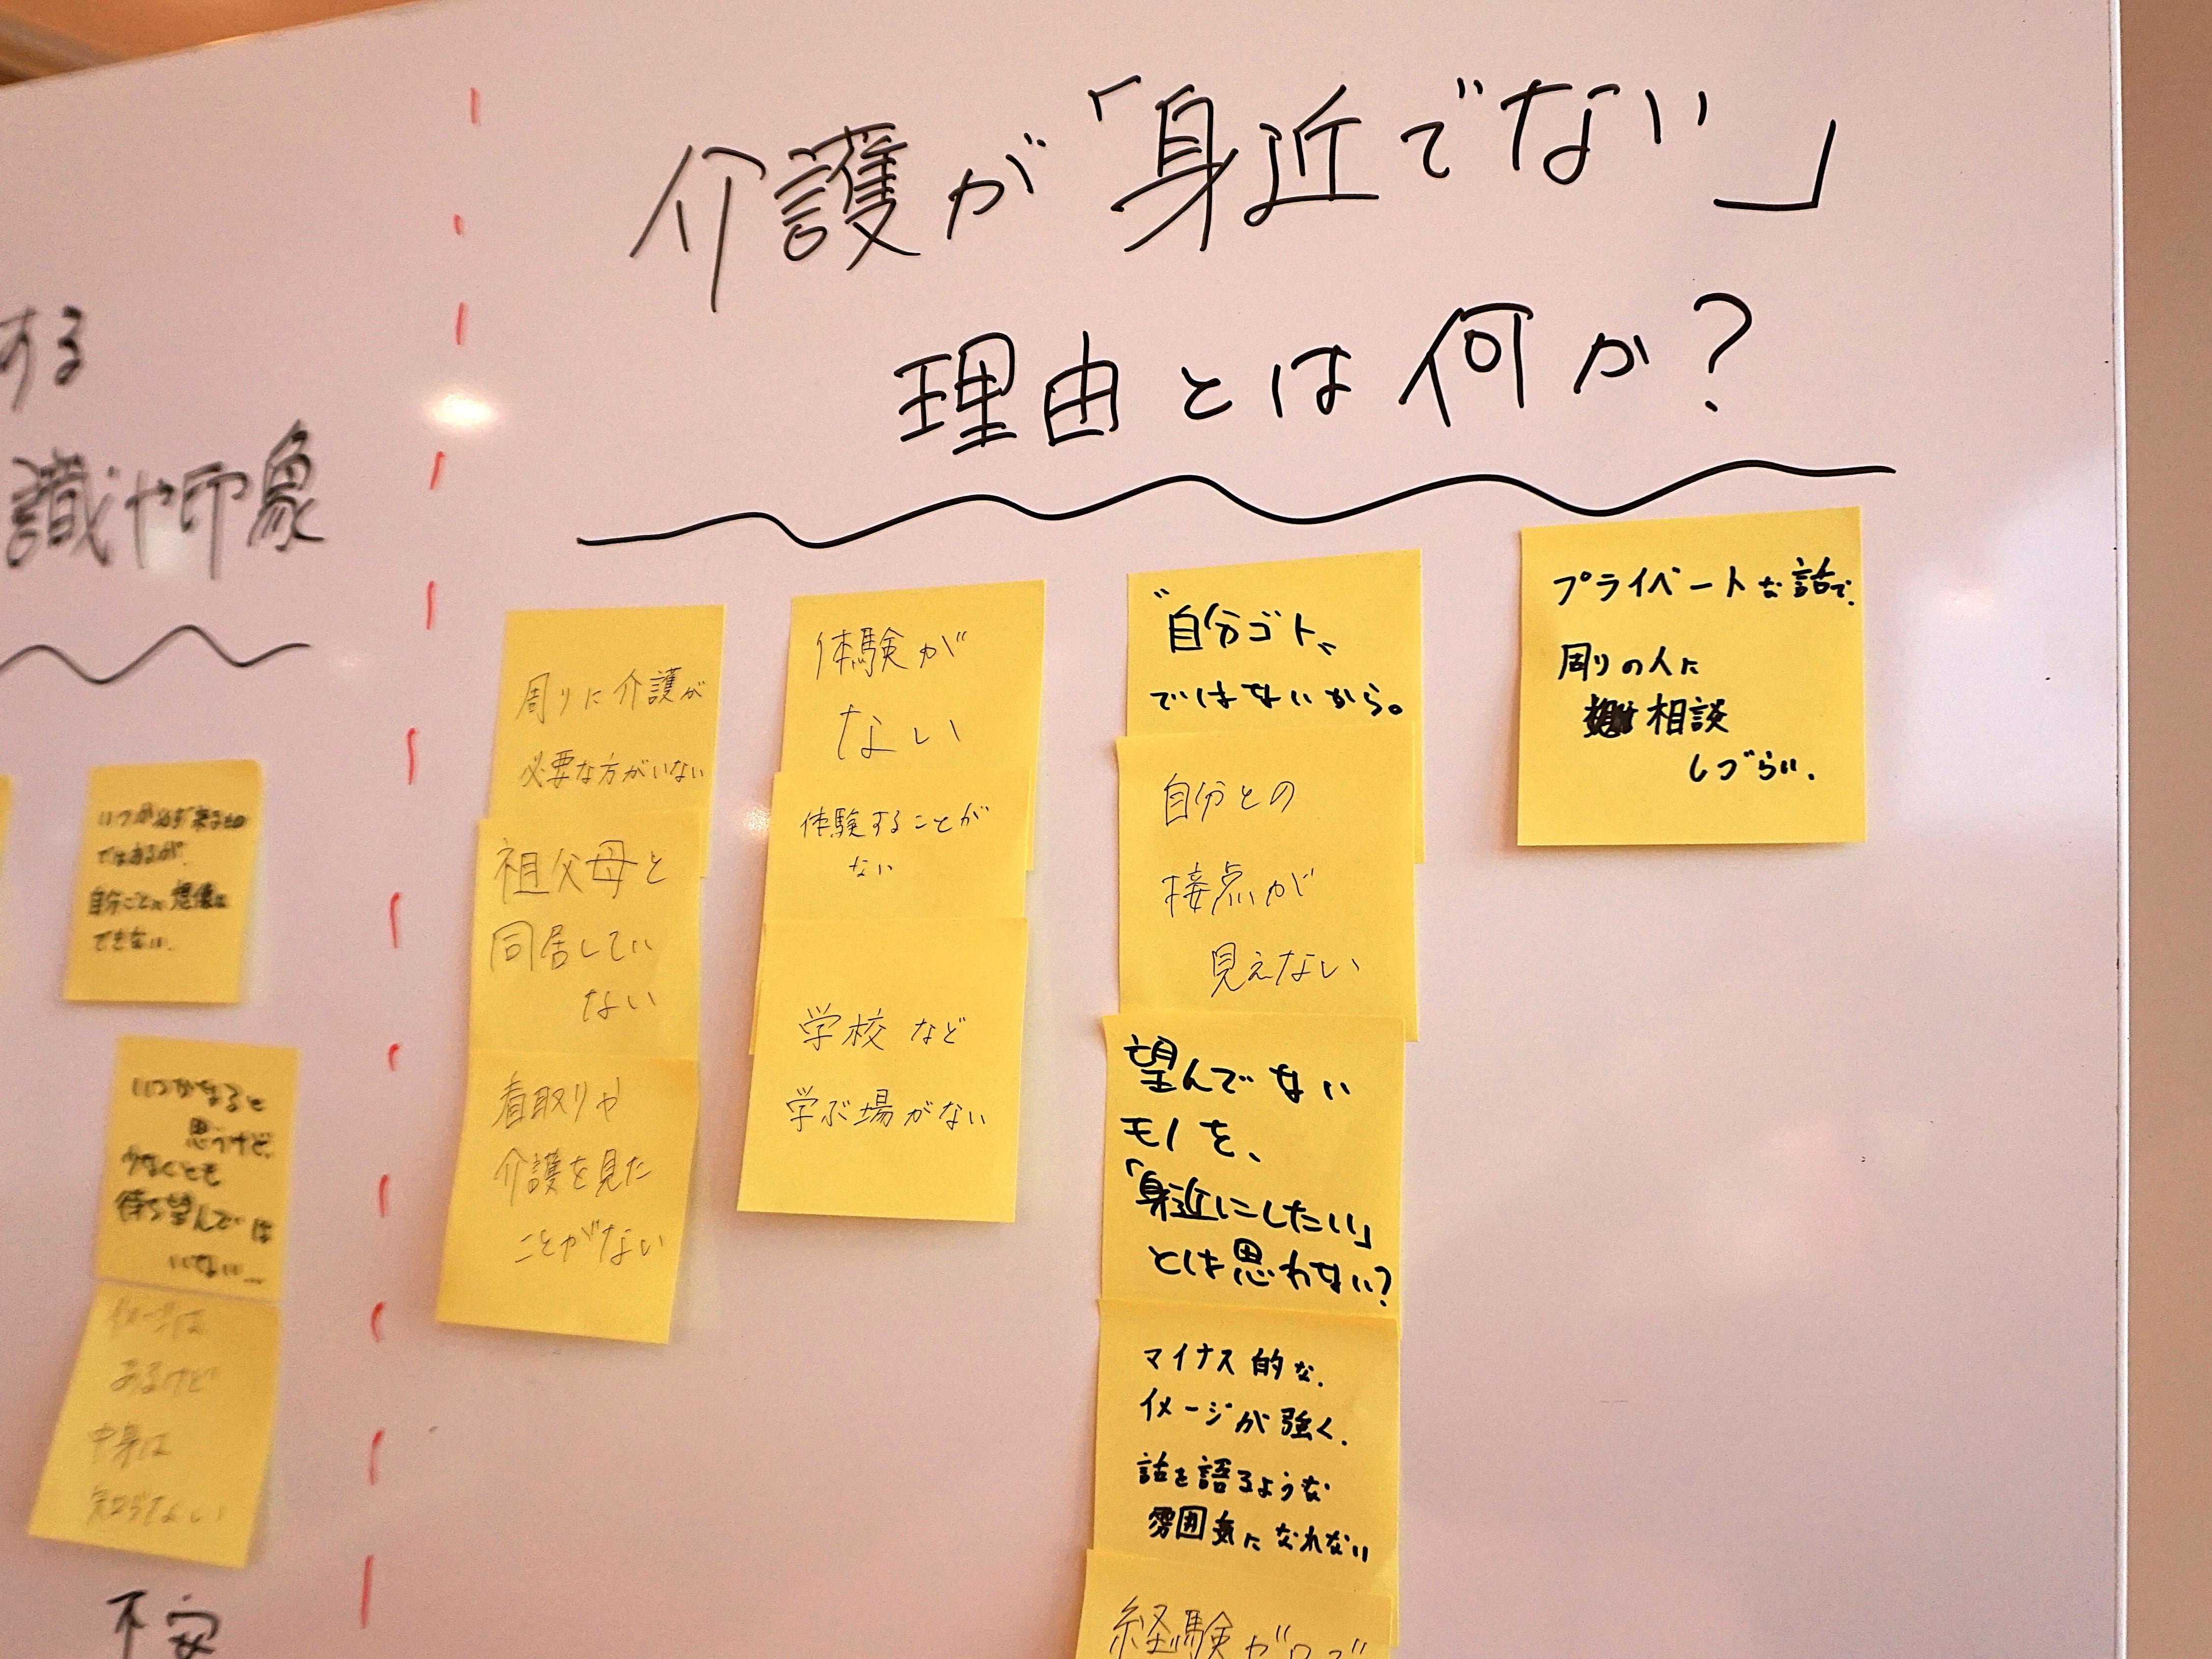 する
識や印象
いつか必ず来るもの
ではあるが、
自分ごとに想像は
できない。
いつかなると
思うけど、
少なくとも
待ち望んでは
いない…
イメージは
あるけど
中身は
知らない
不安
介護が「身近でない」
理由とは何か?
周りに介護が
必要な方がいない
祖父母と
同居してい
ない
看取りや
介護を見た
ことがない
体験が
ない
体験することが
ない
学校など
学ぶ場がない
"自分ゴト"
ではないから。
自分との
接点が
見えない
望んでない
モノを、
「身近にしたい」
とは思わない?
マイナス的な、
イメージが強く、
話を語るような
雰囲気になれない
経験がロで
プライベートな話で、
周りの人に
相談
しづらい、